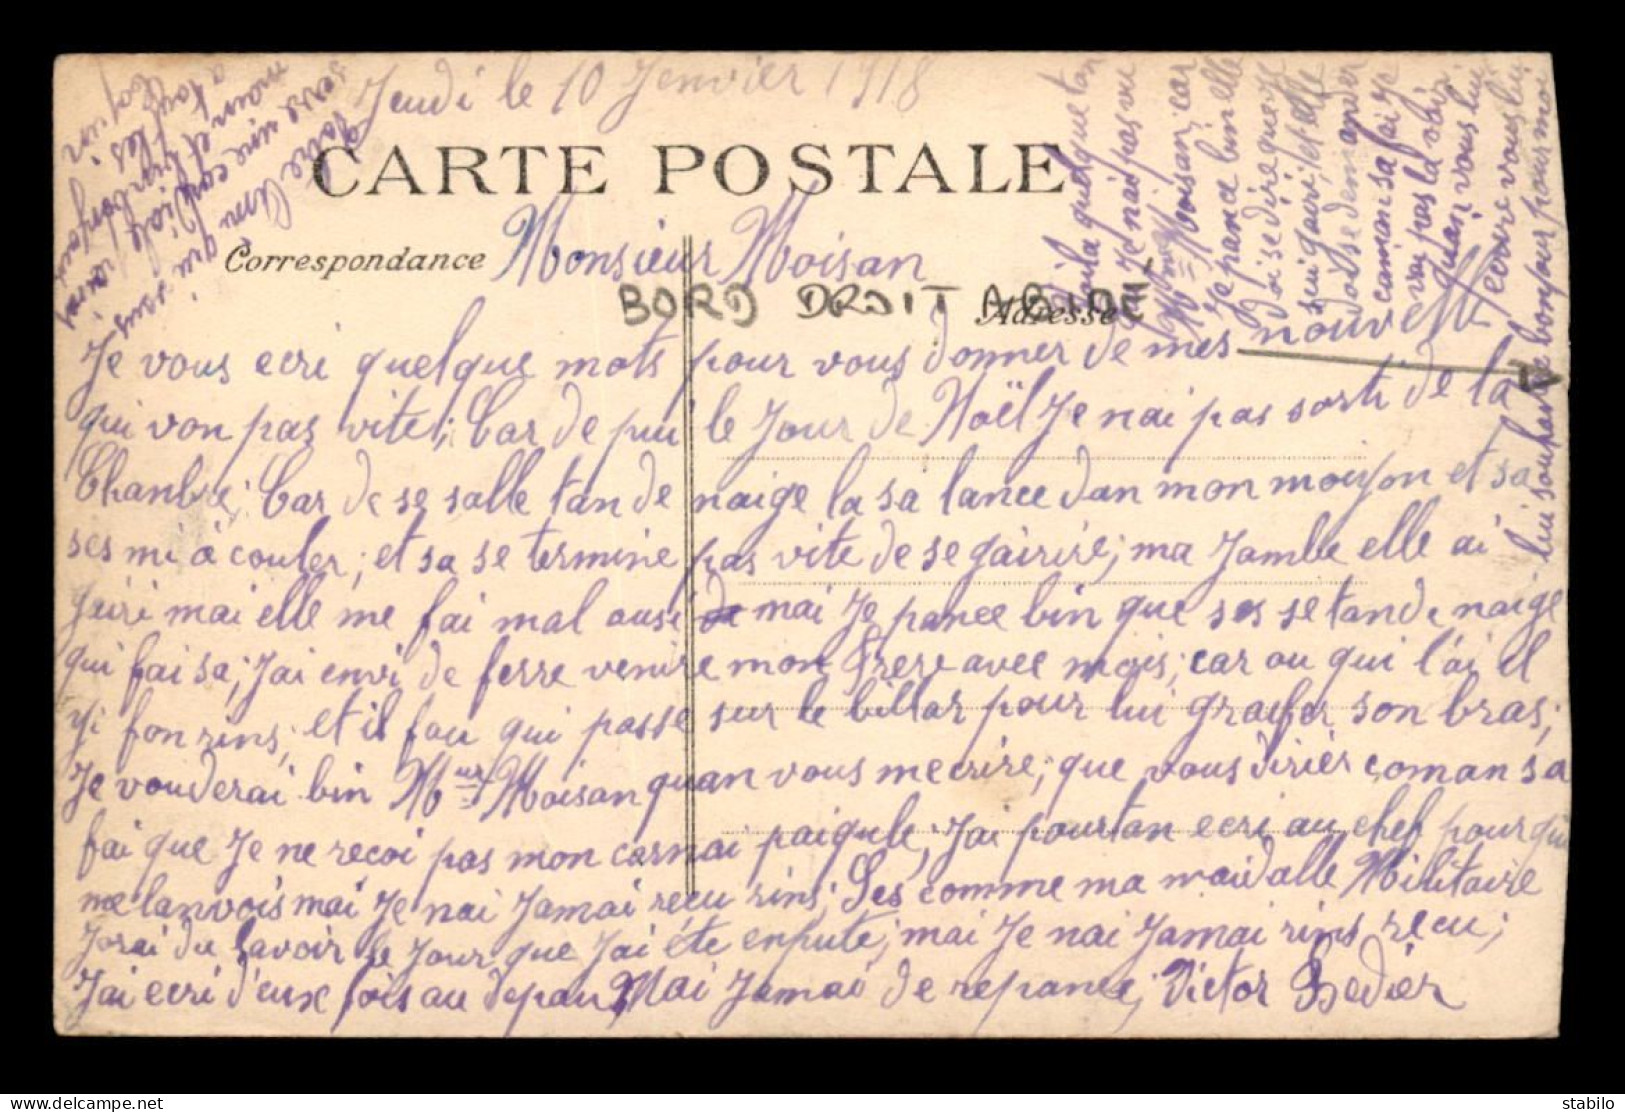 Jeudi le 10 Jenvier 1918
CARTE POSTALE
Correspondance
Adresse
BORD DROIT ABIMÉ
Monsieur Moisan
Je vous ecri quelque mots pour vous donner de mes nouvelle
qui von pas vite; Car de pui le Jour de Noël Je nai pas sorti de la
Chanbre; Car de se salle tan de naige la sa lance dan mon moiyon et sa
ses mi à couler; et sa se termine pas vite de se gairire; ma Jambe elle ai
guiri mai elle me fai mal ausi mai Je pance bin que ses se tan de naige
qui fai sa; Jai envi de ferre venire mon frere avec mois; car ou qui l'ai il
yi fon rins; et il fau qui passe sur le billar pour lui graifer son bras;
Je vouderai bin Mr Moisan quan vous mecrire; que vous dirier coman sa
fai que Je ne recoi pas mon carnai paigule; Jai pourtan ecri au chef pour qui
me lanvois mai Je nai Jamai recu rins; Ses comme ma maidalle Militaire
Jorai du lavoir le Jour que Jai éte enpute; mai Je nai Jamai rins recu;
Jai ecri d'eux fois au depau Mai Jamai de reponce; Victor Bedier
Voila quelque tan
que Je nai pas vu
Mme Moisan; car
Je pance bin elle
doi se dire que Je
sui gairi; et elle
dois se demander
coman sa fai Je
vai pas la voir
quan vous lui
ecrire vous lui
lui souhaite bonjour pour moi
Votre Ami qui vous
sere une cordiale poinier
main et bien bonjour
a tous les